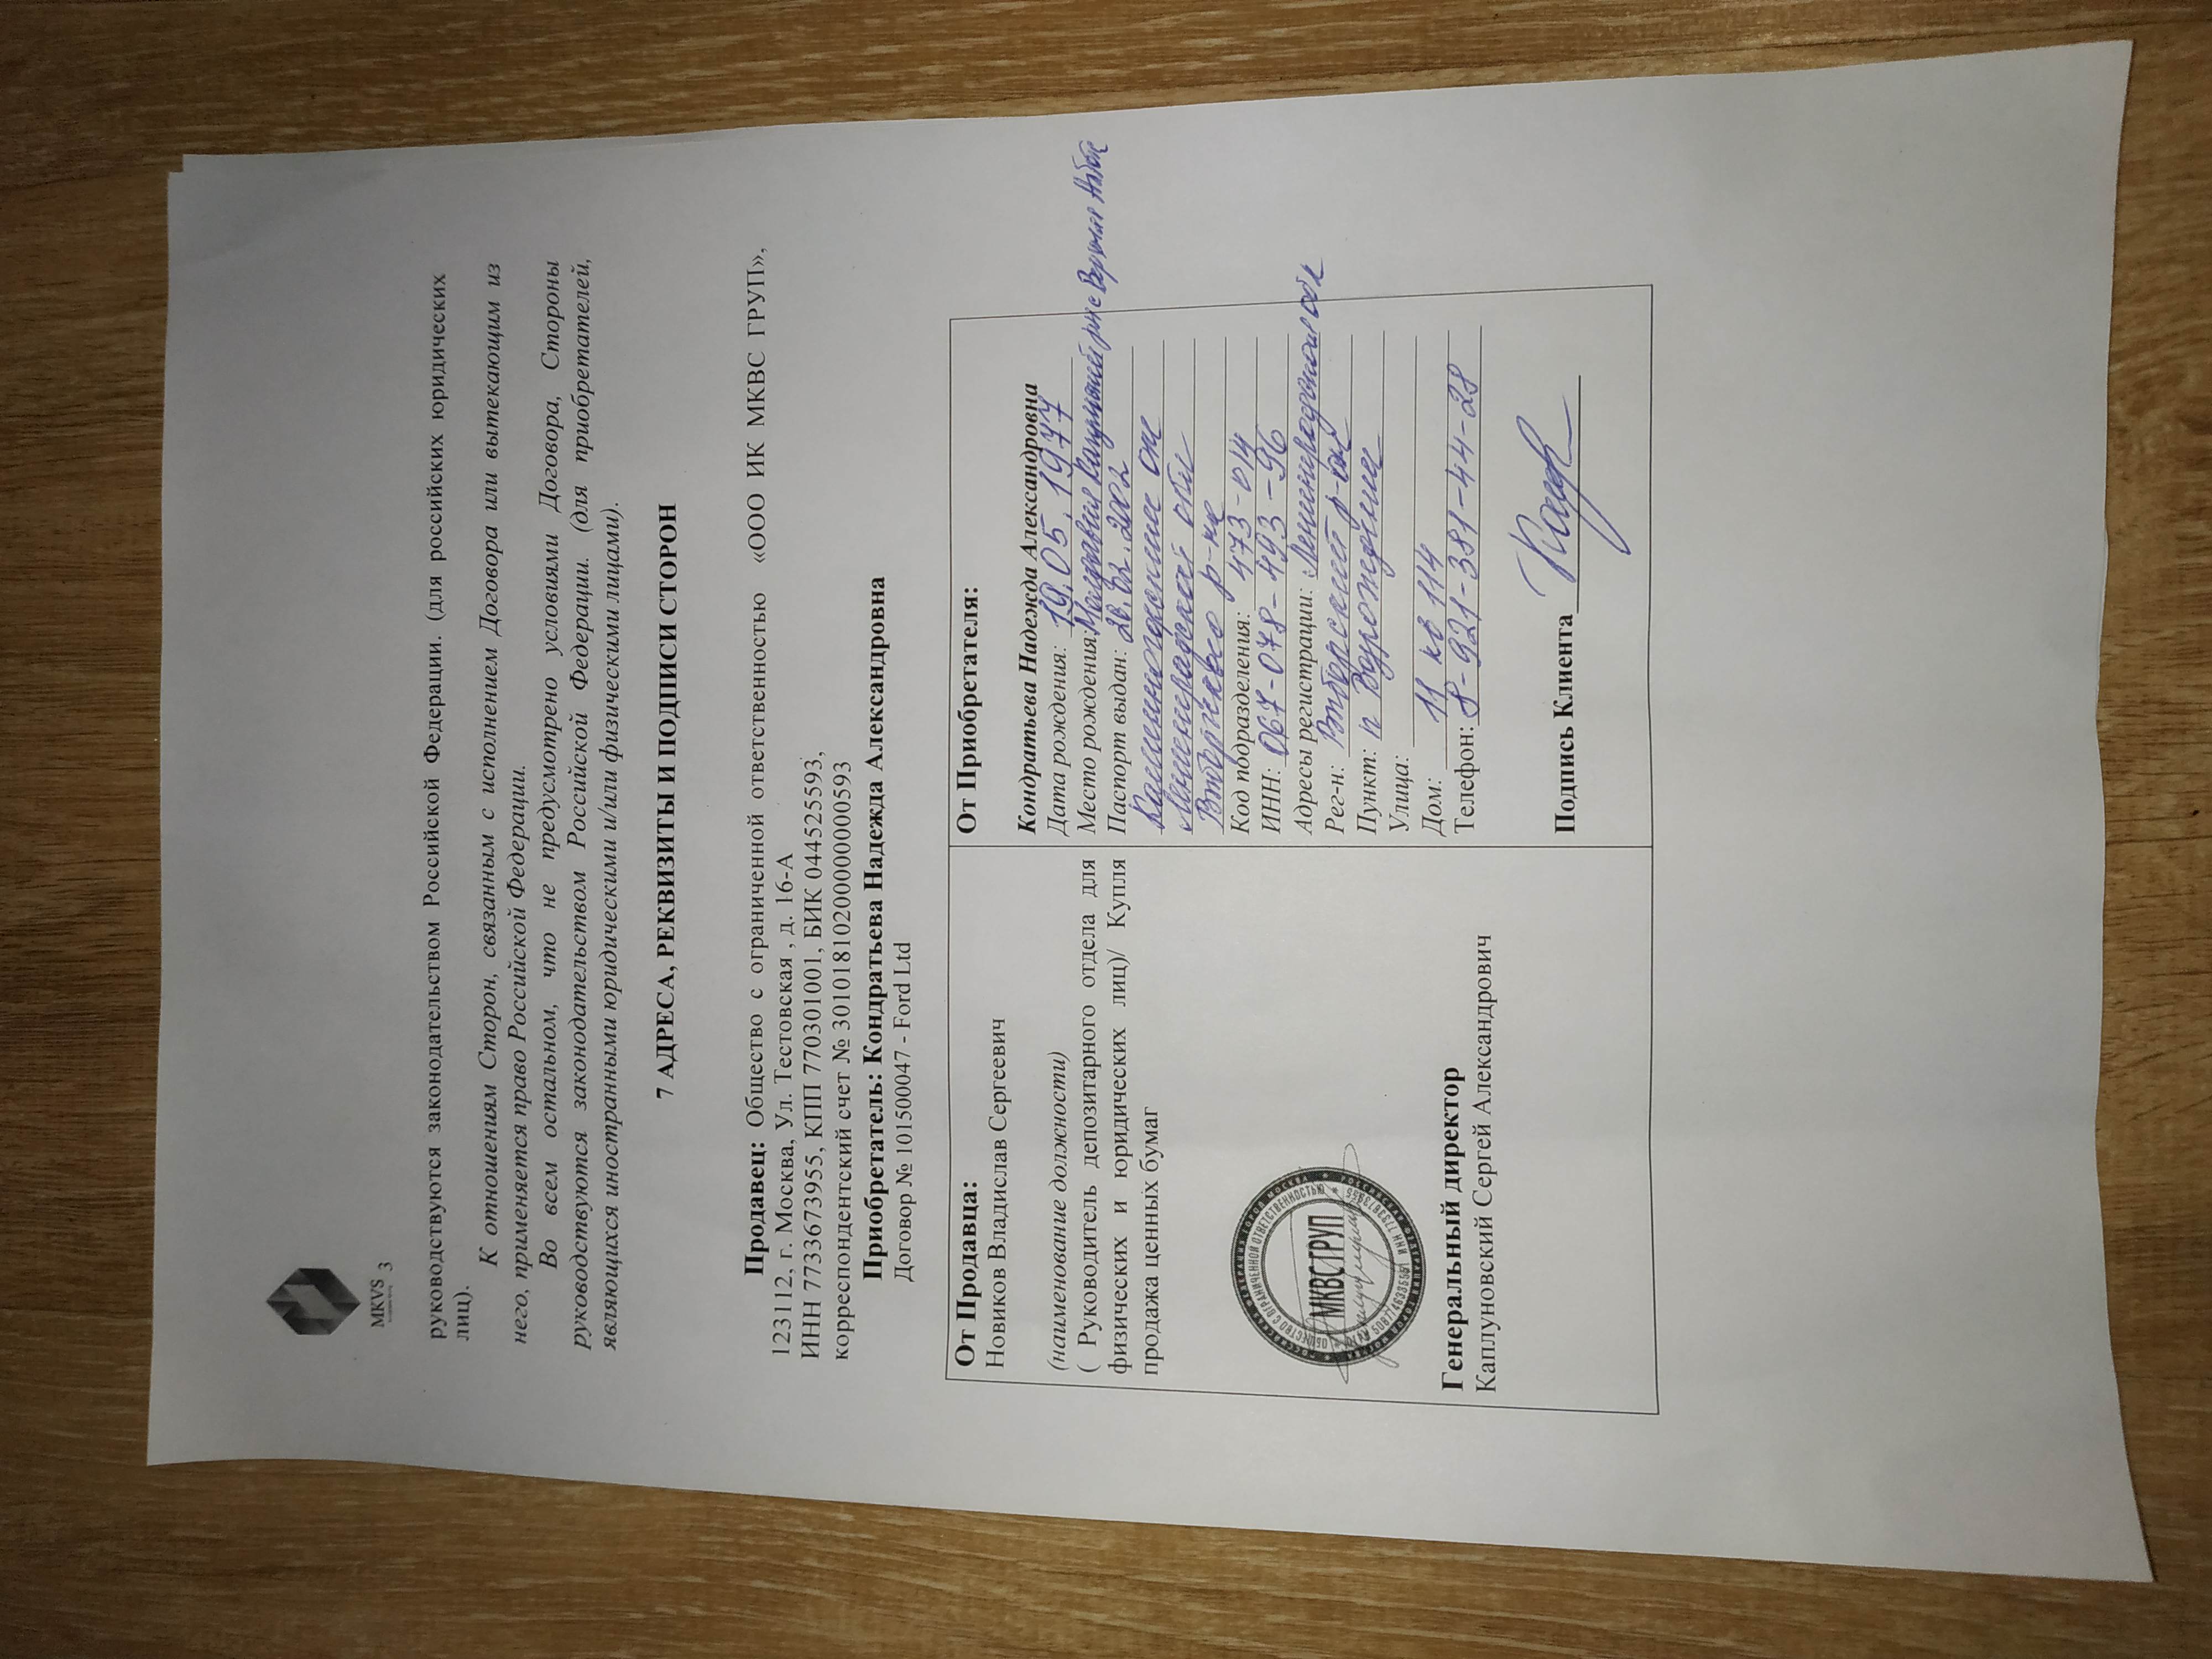 MKVS 3
руководствуются законодательством Российской Федерации. (для российских юридических
лиц).
К отношениям Сторон, связанным с исполнением Договора или вытекающим из
него, применяется право Российской Федерации.
Во всем остальном, что не предусмотрено условиями Договора, Стороны
руководствуются законодательством Российской Федерации. (для приобретателей,
являющихся иностранными юридическими и/или физическими лицами).
7 АДРЕСА, РЕКВИЗИТЫ И ПОДПИСИ СТОРОН
Продавец: Общество с ограниченной ответственностью «ООО ИК МКВС ГРУП»,
123112, г. Москва, Ул. Тестовская , д. 16-А
ИНН 7733673955, КПП 770301001, БИК 044525593,
корреспондентский счет № 30101810200000000593
Приобретатель: Кондратьева Надежда Александровна
Договор № 101500047 - Ford Ltd
От Продавца:
Новиков Владислав Сергеевич
(наименование должности)
( Руководитель депозитарного отдела для
физических и юридических лиц)/ Купля
продажа ценных бумаг
МКВС ГРУП
Генеральный директор
Каплуновский Сергей Александрович
От Приобретателя:
Кондратьева Надежда Александровна
Дата рождения: 18.05.1977
Место рождения:
Паспорт выдан: 28.02.2002
Каменногорское ом
Ленинградской обл
Выборгского р-на
Код подразделения: 473-014
ИНН: 067-078-493-96
Адресы регистрации: Ленинградская обл
Рег-н: Выборгский р-он
Пункт: п Возрождение
Улица:
Дом: 11 кв 114
Телефон: 8-921-381-44-28
Подпись Клиента